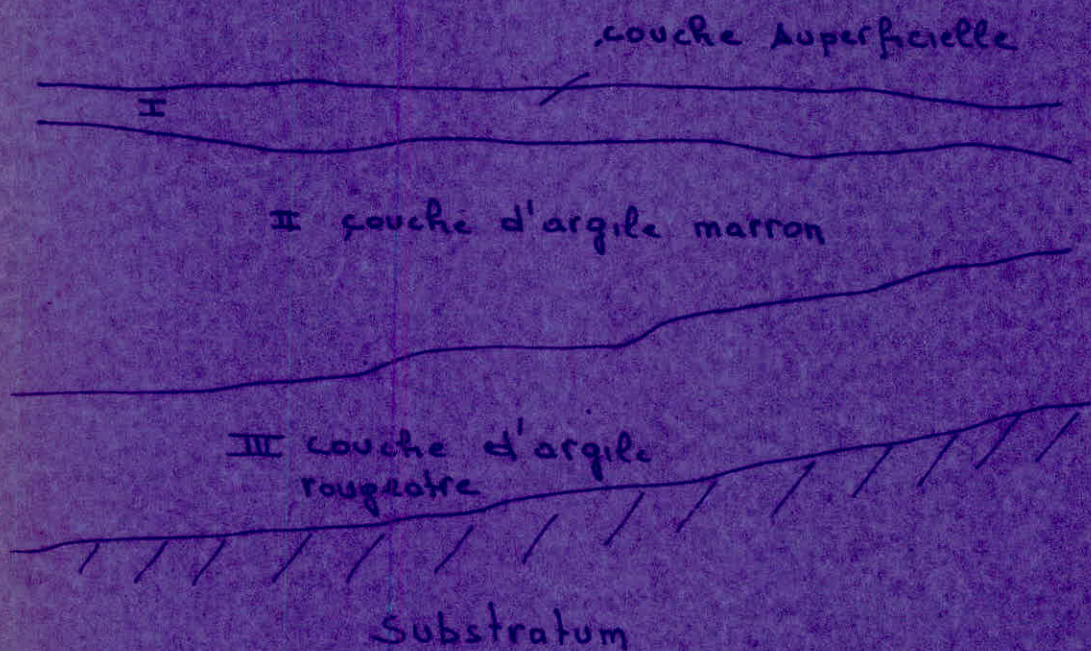 couche superficielle
I
II couche d'argile marron
III couche d'argile
rougeatre
Substratum